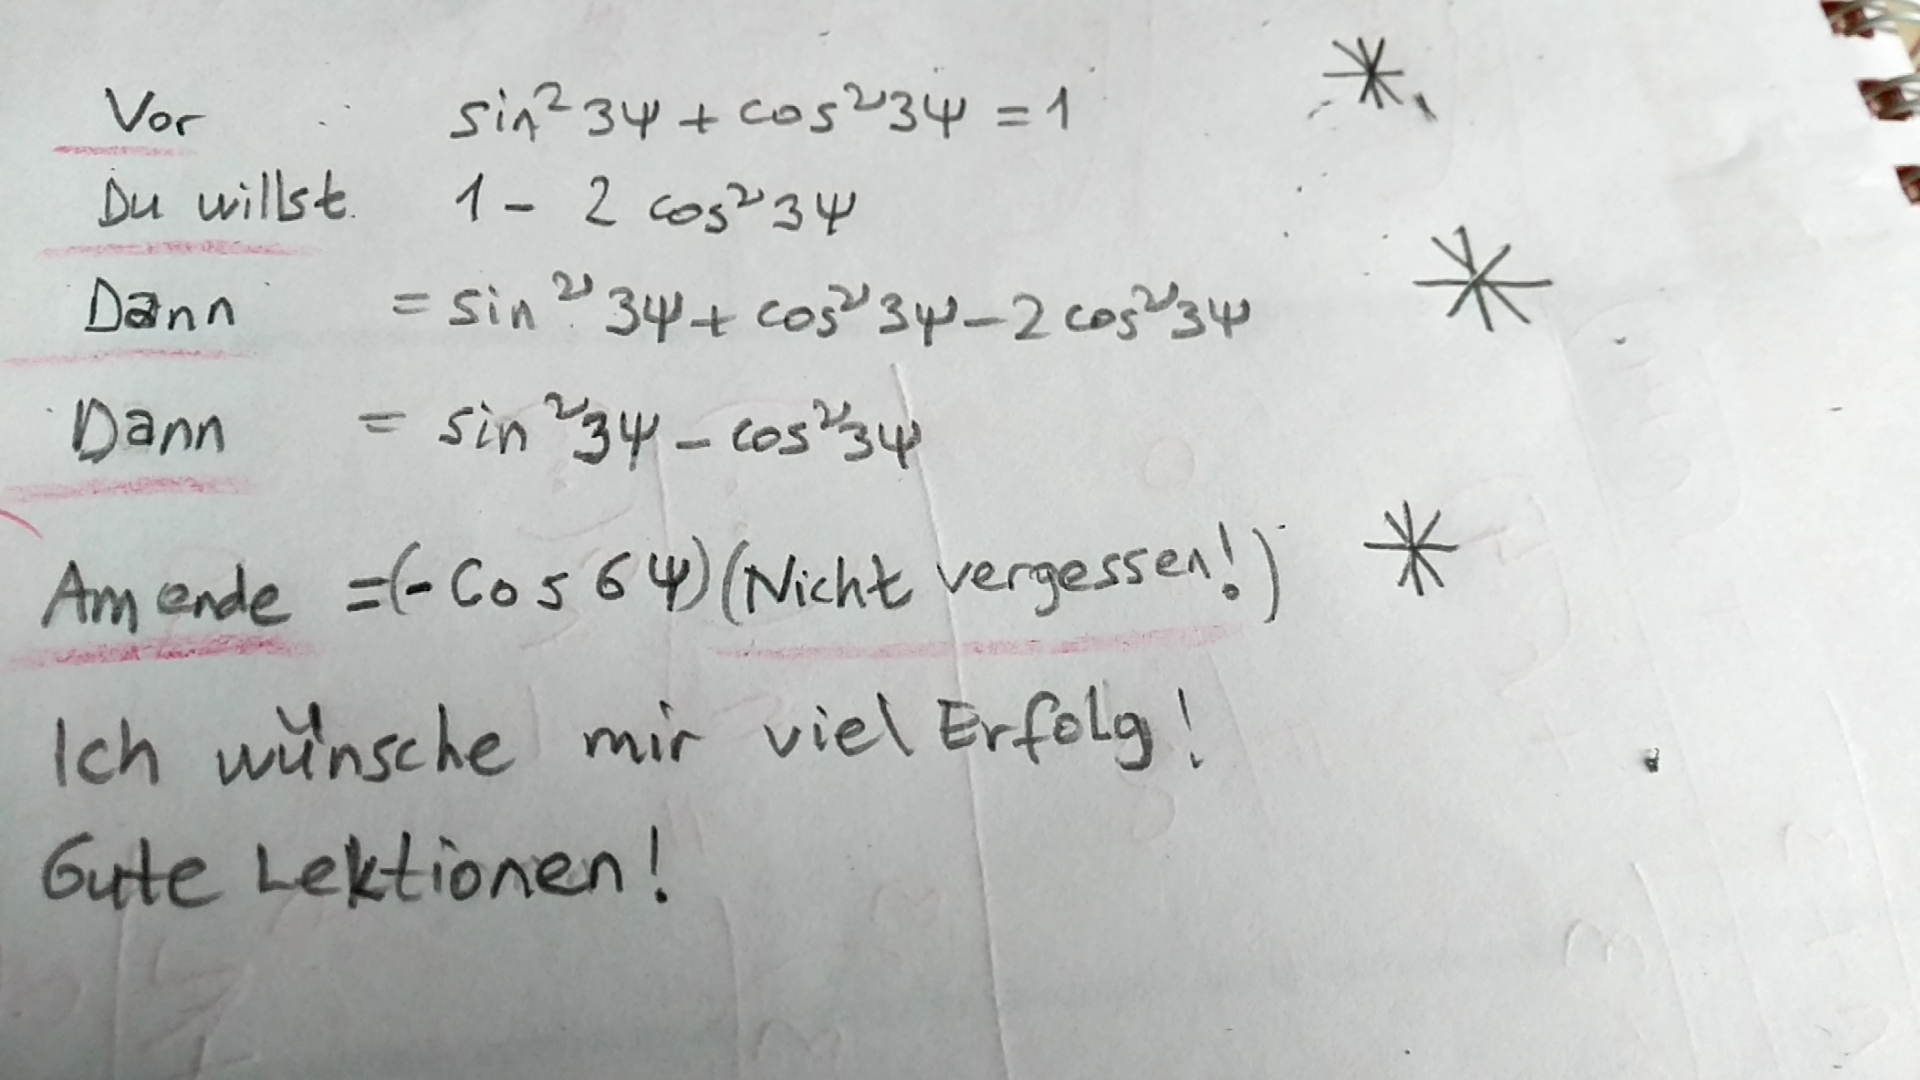 Vor sin²3ψ + cos²3ψ = 1
Du willst. 1 - 2 cos²3ψ
Dann = sin²3ψ + cos²3ψ - 2 cos²3ψ
Dann = sin²3ψ - cos²3ψ
Am ende =(- Cos 6ψ) (Nicht vergessen!)
Ich wünsche mir viel Erfolg!
Gute Lektionen!